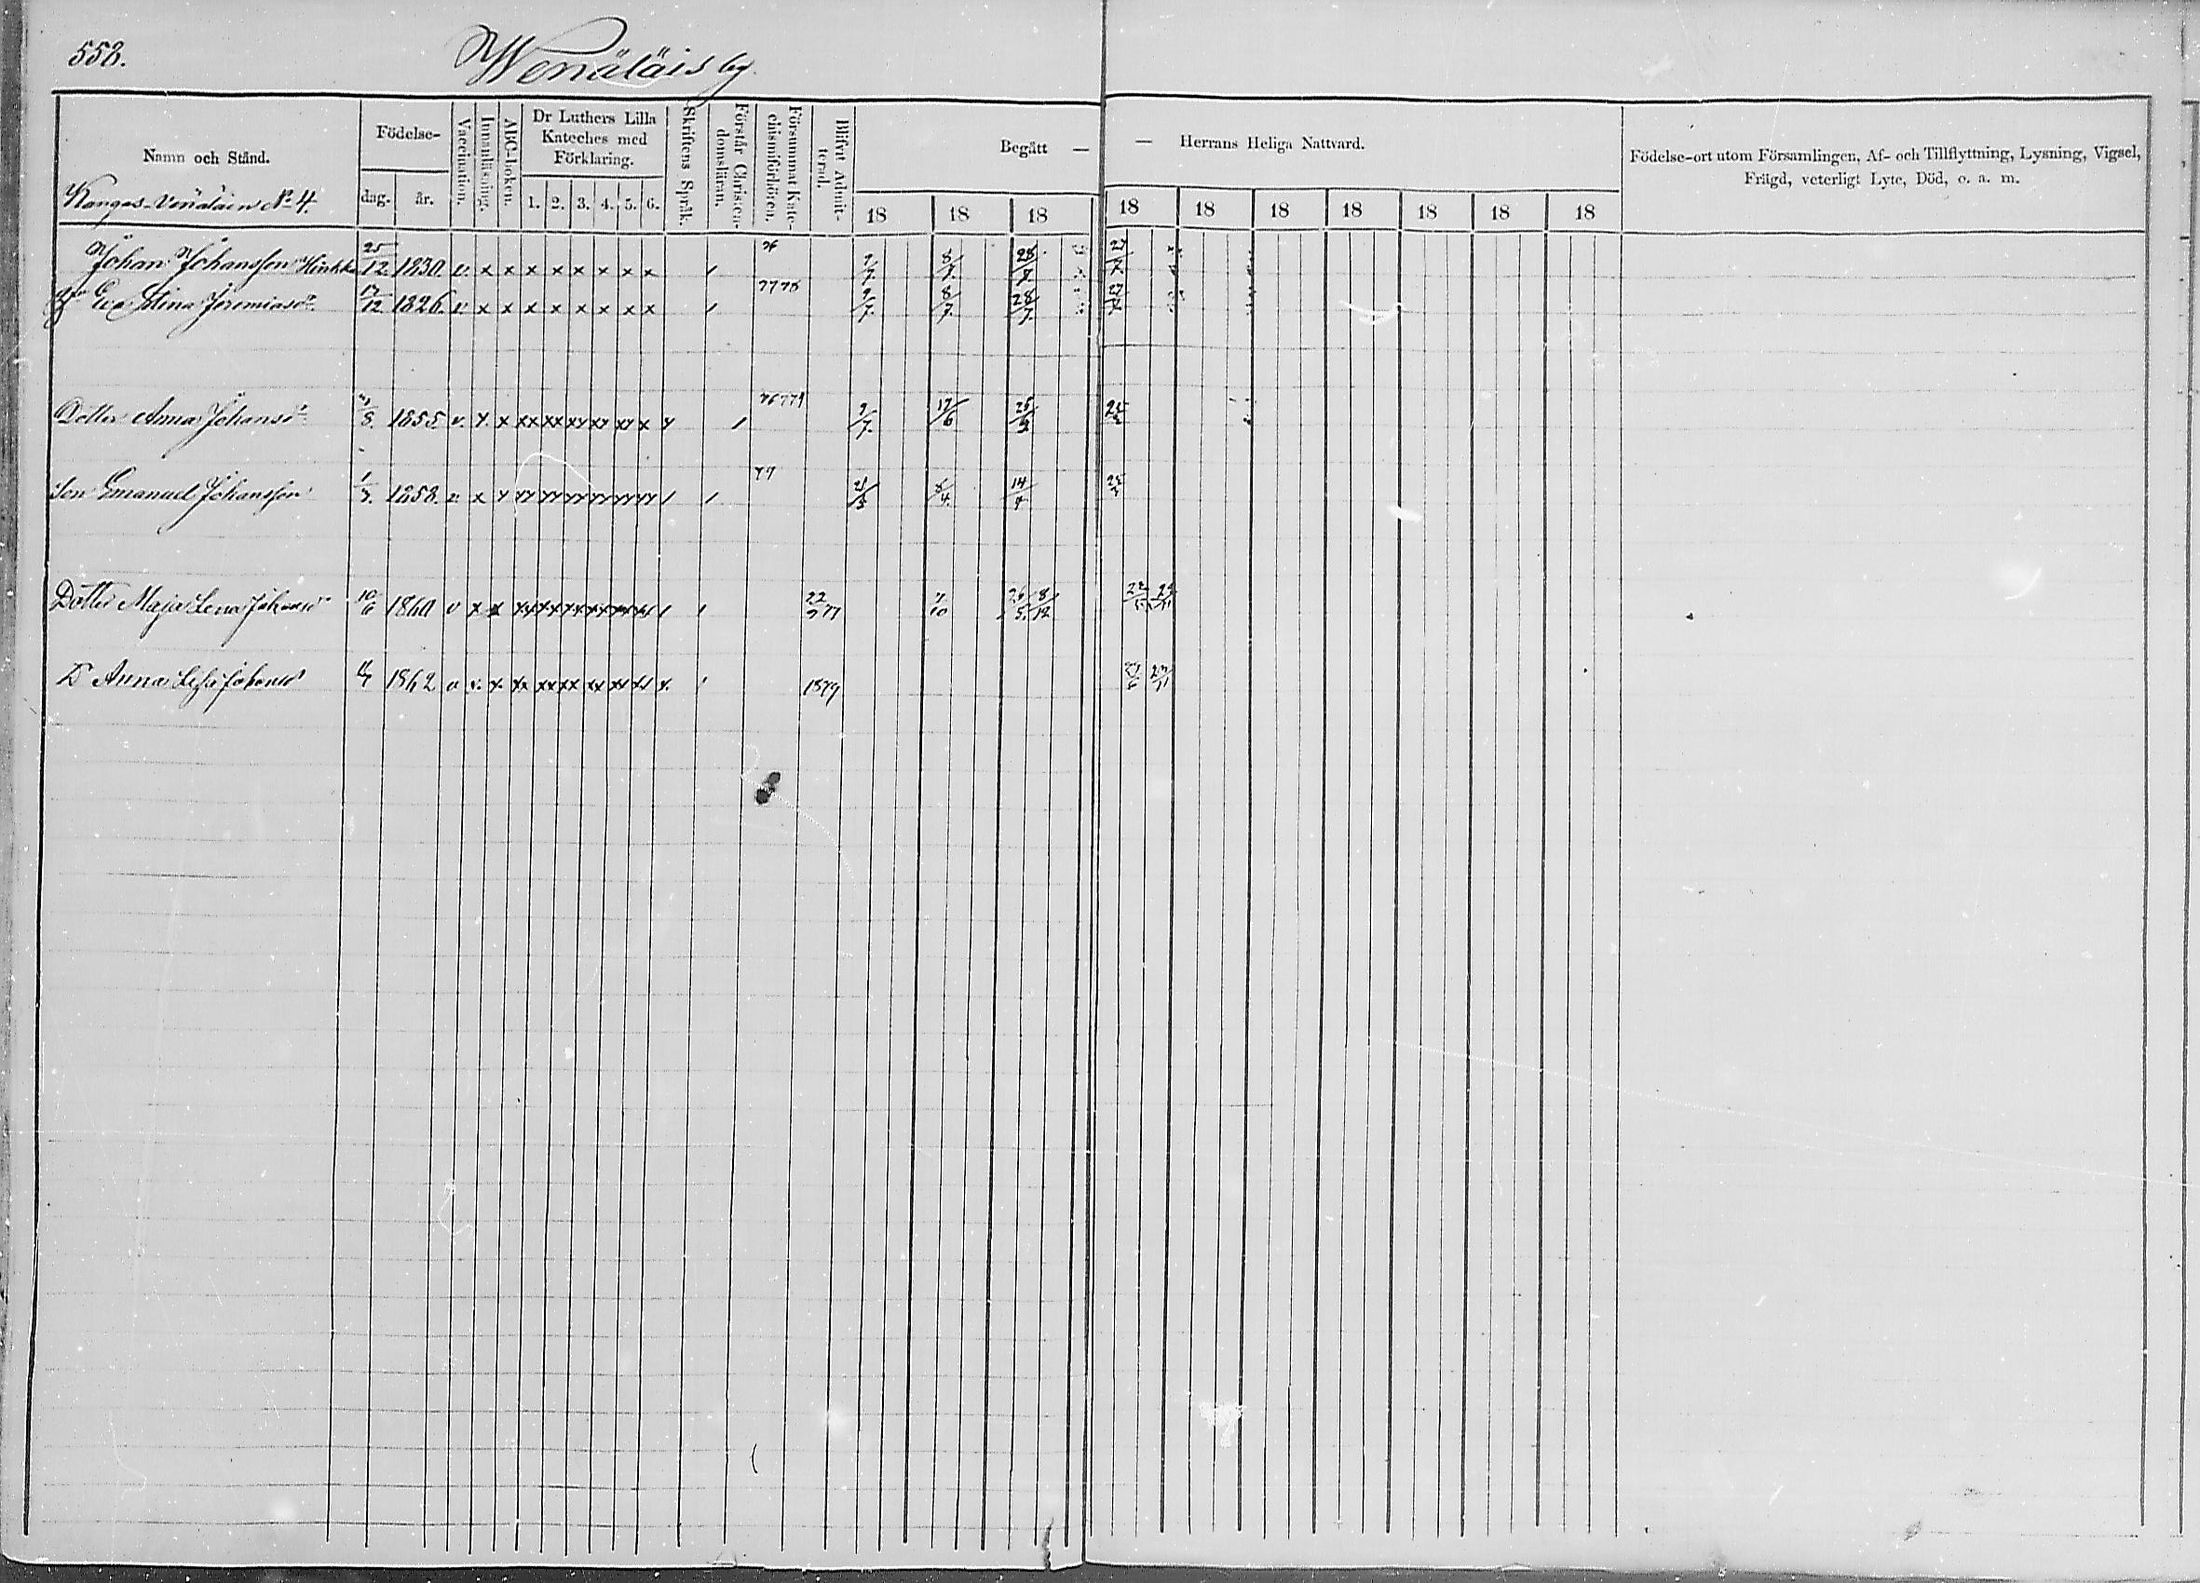 558.
Wenäläis by.
Namn och Stånd.
Födelse-
dag.
år.
Vaccination.
Innanläsning.
ABC-boken.
Dr Luthers Lilla
Kateches med
Förklaring.
1. 2. 3. 4. 5. 6.
Skriftens Språk.
Förstår Christen-
domsläran.
Försummat Kate-
chismiförhören.
Blifvit Admit-
terad.
Begått —
— Herrans Heliga Nattvard.
18 18 18 18 18 18 18 18 18 18
Födelse-ort utom Församlingen, Af- och Tillflyttning, Lysning, Vigsel,
Frägd, veterligt Lyte, Död, o. a. m.
Kangas-Venäläin No 4.
Johan Johansson 25/12 1830. v. x x x x x x x x 9/7. 8/7. 28/7 27/7
Eva Stina Jeremiasdr 17/12 1826. v. x x x x x x x x 7778 9/7. 8/7. 28/7. 27/7
Dotter Anna Johansdr 1855. v. x x xx xx xx xx xx x 9/7. 17/6
Son Emanuel Johansson 1/7. 1858. v. x 77 14/4
Dotter Maja Lena Johansdr 10/6 1860 v x x 22/9 77 7/10 8/12
Dr Anna 1862 v x. x. xx xx xx xx xx 1879